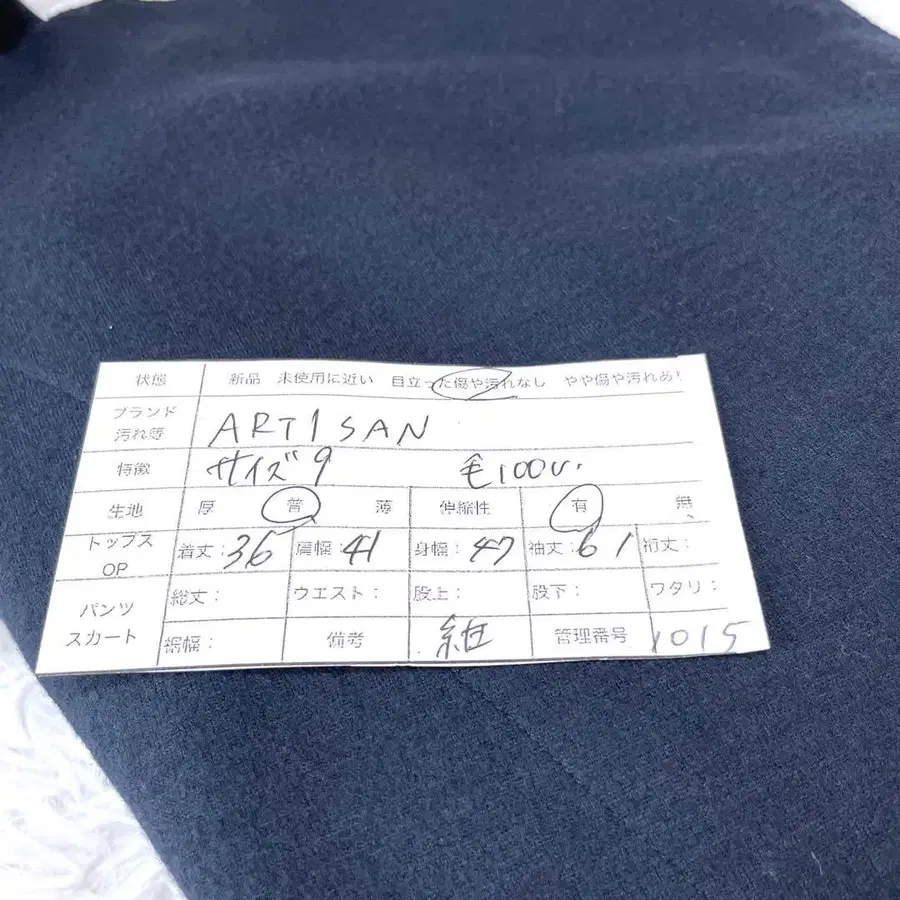 状態 新品 未使用に近い 目立った傷や汚れなし やや傷や汚れあ!
ブランド
汚れ等 ARTISAN
特徴 サイズ9 毛100%.
生地 厚 普 薄 伸縮性 有 無、
トップス
OP 着丈:36 肩幅:41 身幅:47 袖丈:61 裄丈:
パンツ
スカート 総丈: ウエスト: 股上: 股下: ワタリ:
裾幅: 備考 紺 管理番号 1015